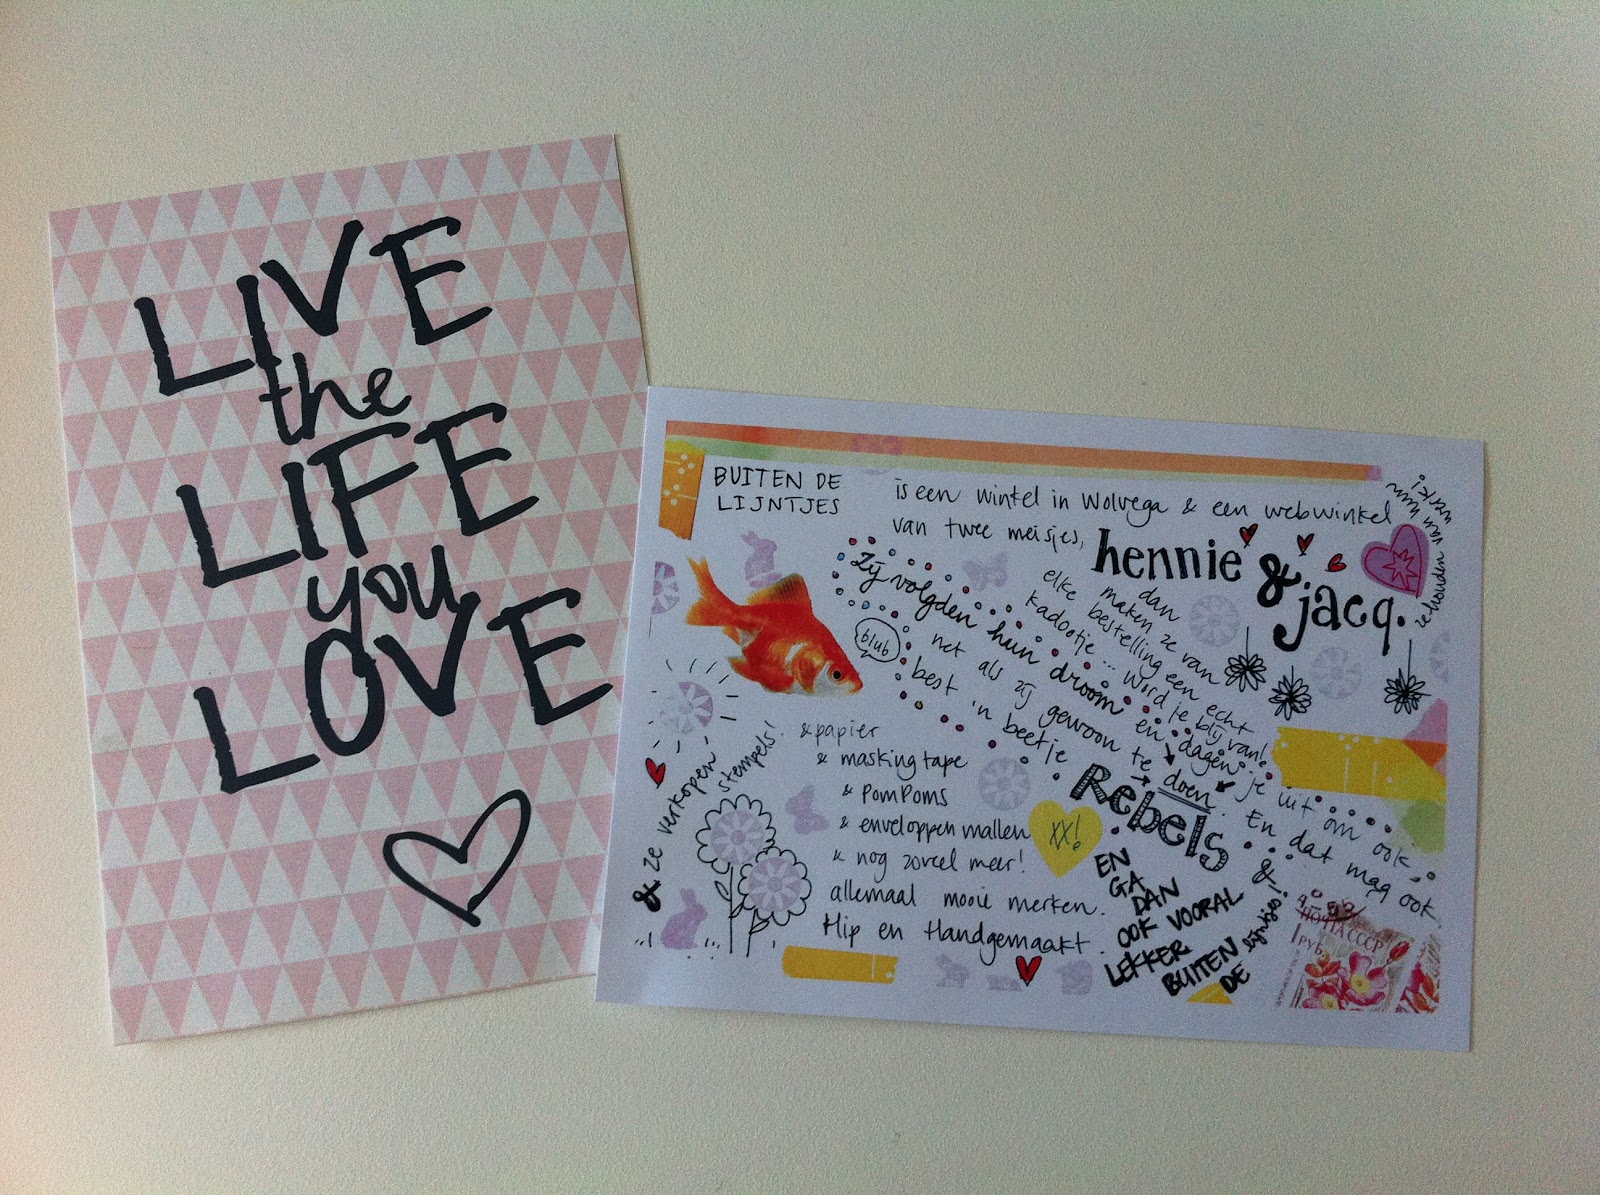 LIVE
the
LIFE
you
LOVE
BUITEN DE
LIJNTJES
is een winkel in Wolvega & een webwinkel
van twee meisjes,
hennie
&
jacq.
ze houden van hun
werk!
dan
maken ze van
elke bestelling een echt
kadootje... Word je blij van!
Zij volgden hun droom en dagen je uit om ook
net als zij gewoon te doen. En dat mag ook
best 'n beetje
Rebels
blub
& ze verkopen
stempels!
& papier
& maskingtape
& PomPoms
& enveloppen mallen
& nog zoveel meer!
allemaal mooie merken.
Hip en Handgemaakt
XX!
EN
GA
DAN
OOK VOORAL
LEKKER
BUITEN
DE
lijntjes!
&
ПОЧТА СССР
1 РУБ.